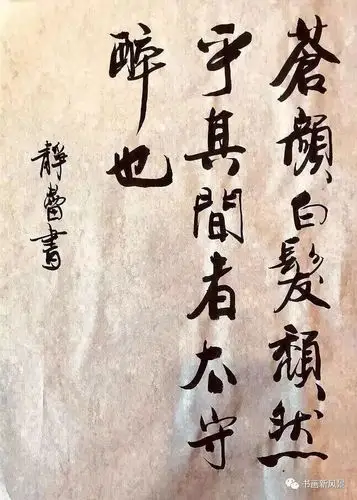 蒼顏白髮頹然
乎其間者太守
醉也
靜蕾書
书画新风景